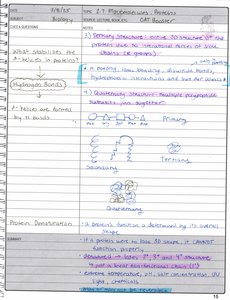 DATE 8/8/25 TOPIC 2.7 Macromolecules: Proteins
SUBJECT Biology SOURCE (LECTURE, BOOK, ETC) DAT Booster
CUES & QUESTIONS NOTES
3) Tertiary Structure: entire 3D structure of the
protein due to interactions forces of side
chains (R groups)
What stabilizes the
α-helices in proteins?
Hydrogen Bonds
hydrophobic interactions and van der Waals
4) Quaternary Structure - multiple polypeptide
subunits join together
helices are formed
by H bonds
Primary
Secondary
Tertiary
Quaternary
Protein Denaturation
• A protein's function is determined by its overall
shape
SUMMARY
• if a protein were to lose 3D shape, it CANNOT
function properly
• Denatured → loses 2°, 3° and 4° structure
• extreme temperature, pH, salt concentration, UV
light, chemicals
may or may not be reversible
15